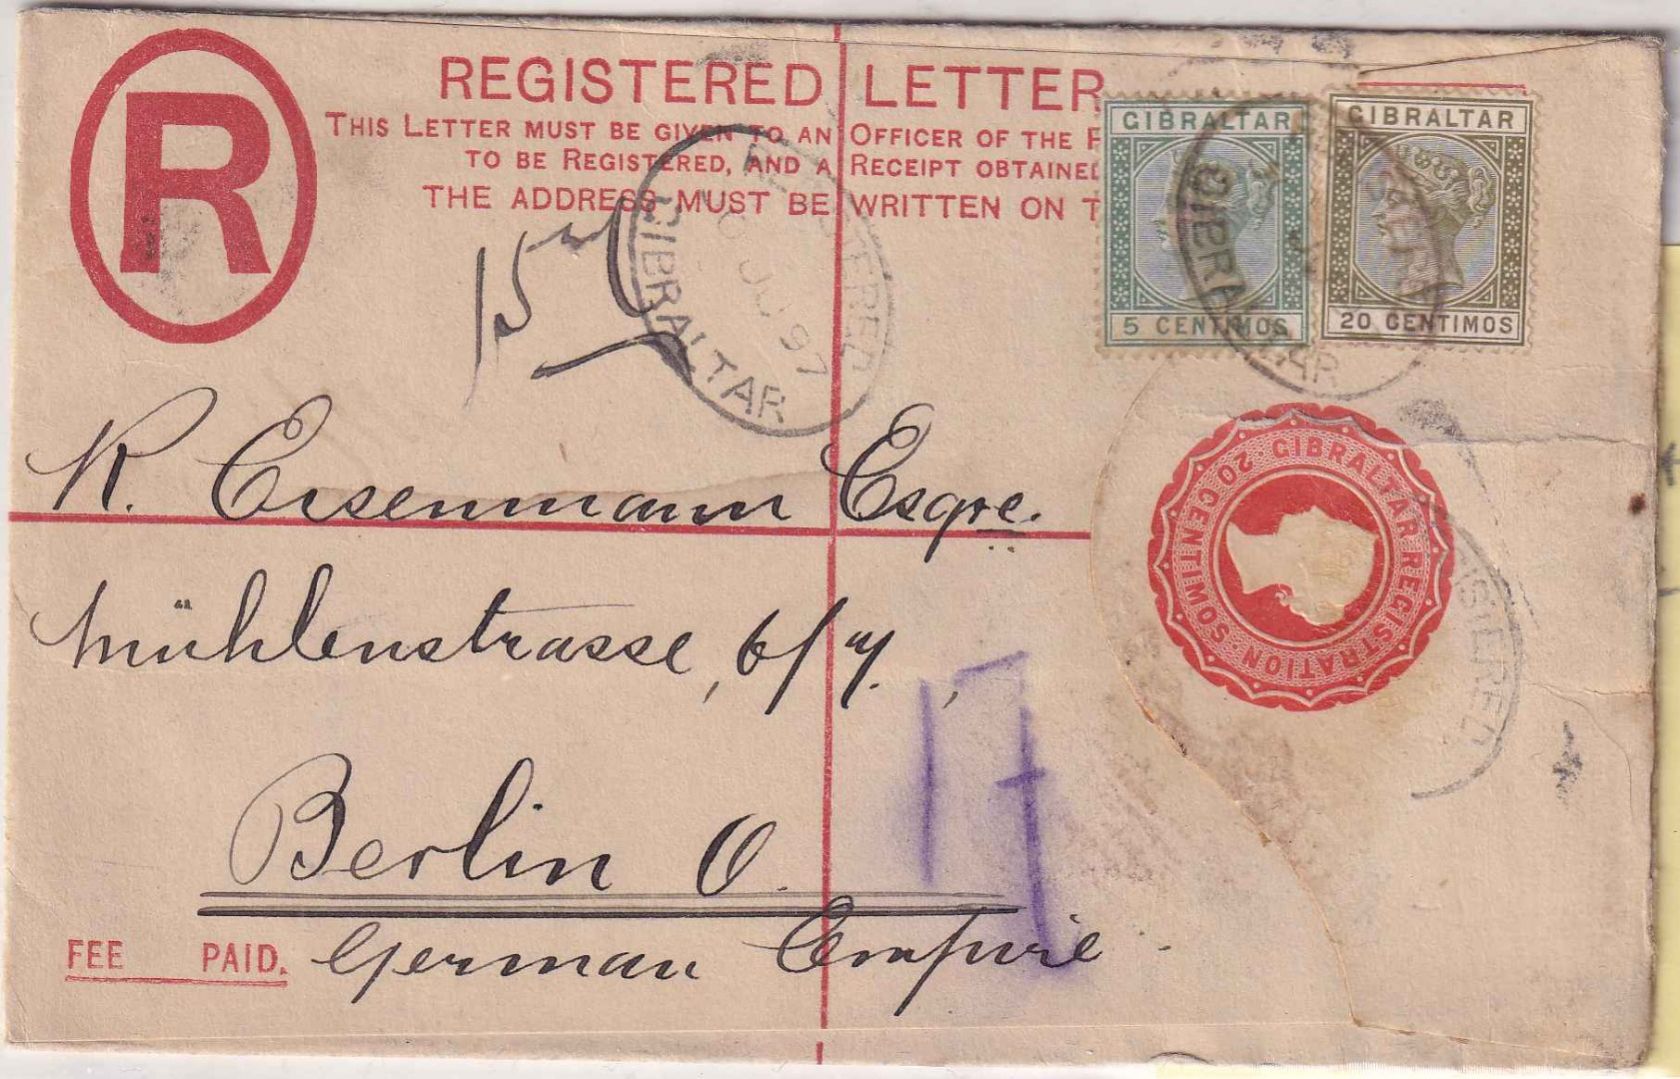 R
REGISTERED LETTER
THIS LETTER MUST BE GIVEN TO AN OFFICER OF THE P
TO BE REGISTERED, AND A RECEIPT OBTAINED
THE ADDRESS MUST BE WRITTEN ON T
GIBRALTAR
5 CENTIMOS
GIBRALTAR
20 CENTIMOS
REGISTERED
JU 97
GIBRALTAR
REGISTERED
GIBRALTAR
GIBRALTAR REGISTRATION
20 CENTIMOS
ISTERED
R. Eisenmann Esqre.
Mühlenstrasse, 6/7.
Berlin O.
German Empire
FEE PAID.